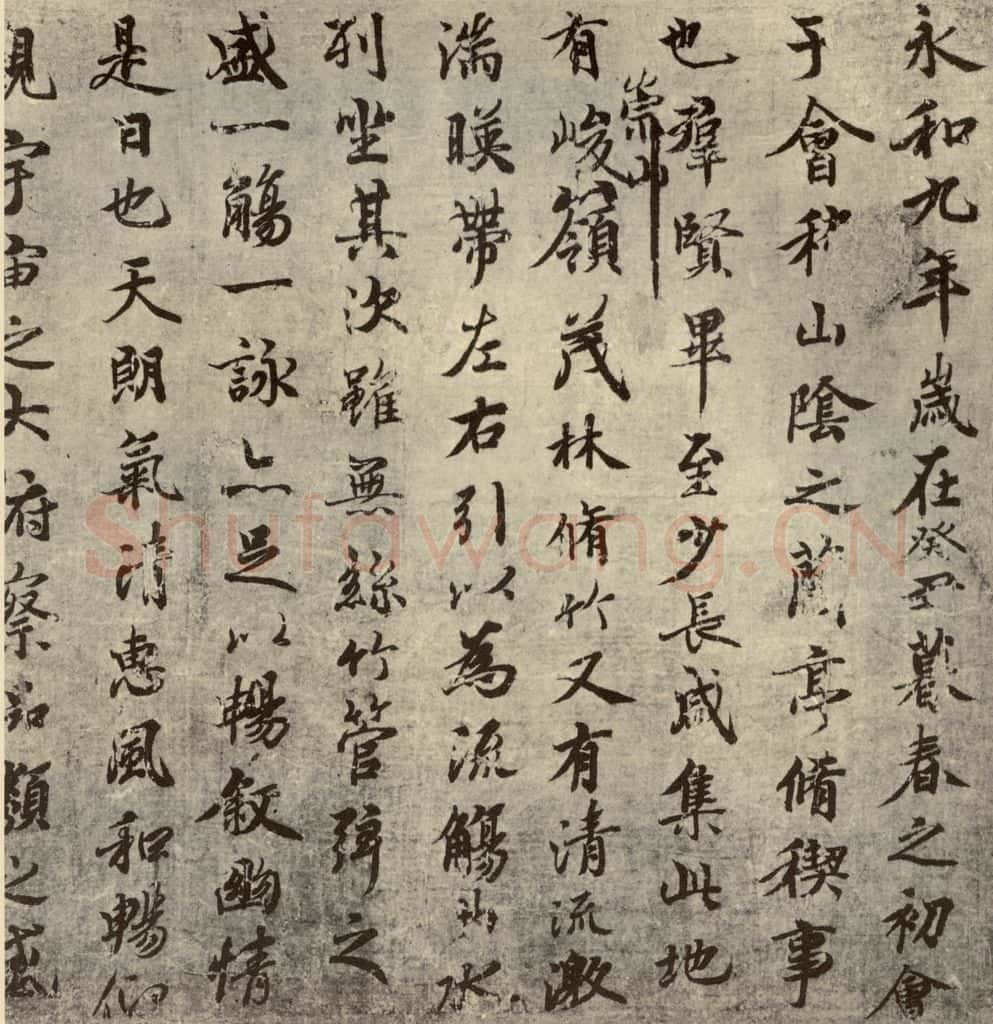 永和九年歲在癸丑暮春之初會
于會稽山陰之蘭亭脩稧事
也羣賢畢至少長咸集此地
有崇山峻嶺茂林脩竹又有清流激
湍暎帶左右引以為流觴曲水
列坐其次雖無絲竹管弦之
盛一觴一詠亦足以暢敘幽情
是日也天朗氣清惠風和暢仰
觀宇宙之大俯察品類之盛
Shufawang.CN